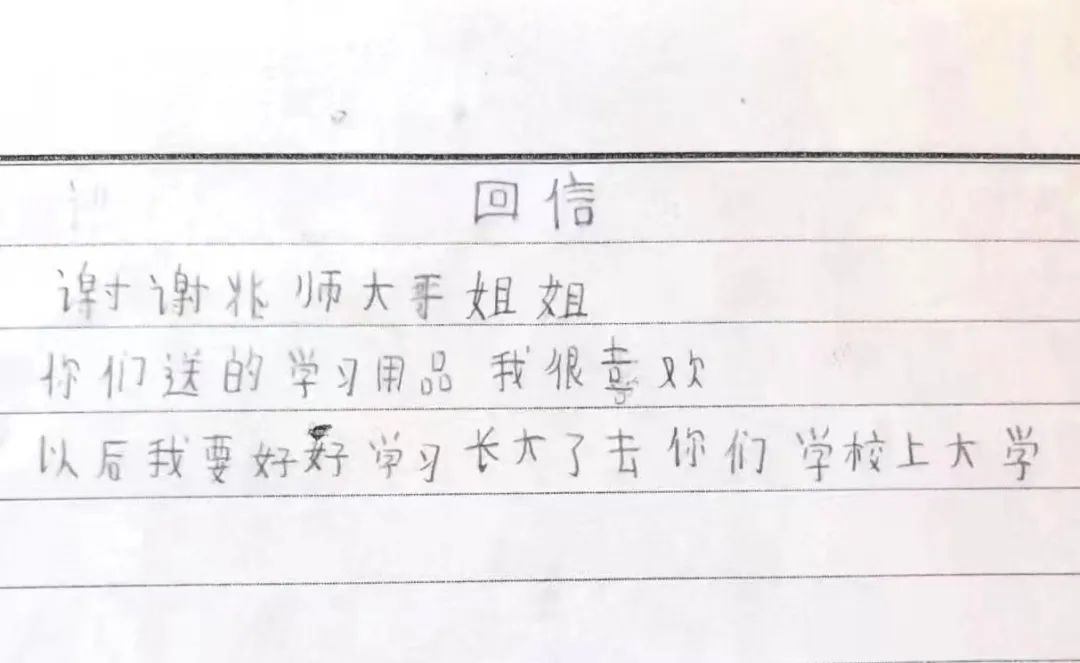 回信
谢谢兆师大哥姐姐
你们送的学习用品 我很喜欢
以后我要好好学习长大了去你们学校上大学